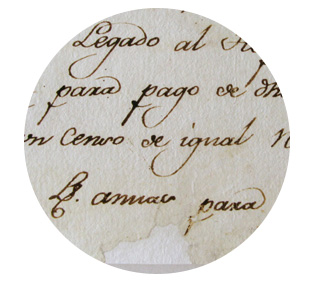 Legado al
para pago de dh
un censo de igual
Ls. annas para